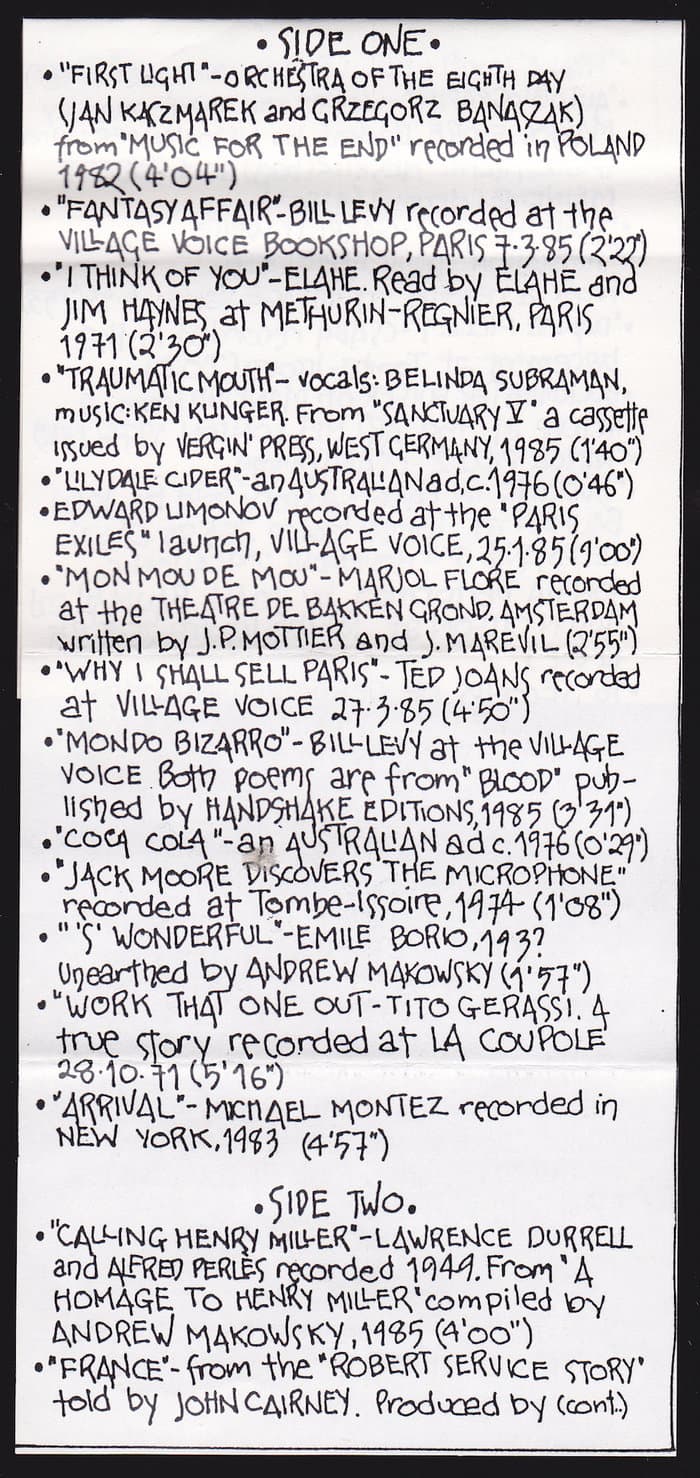 • SIDE ONE •
• "FIRST LIGHT" - ORCHESTRA OF THE EIGHTH DAY
(JAN KACZMAREK and GRZEGORZ BANASZAK)
from "MUSIC FOR THE END" recorded in POLAND
1982 (4'04")
• "FANTASY AFFAIR" - BILL LEVY recorded at the
VILLAGE VOICE BOOKSHOP, PARIS 7·3·85 (2'22")
• "I THINK OF YOU" - ELAHE. Read by ELAHE and
JIM HAYNES at METHURIN-REGNIER, PARIS
1971 (2'30")
• "TRAUMATIC MOUTH" - vocals: BELINDA SUBRAMAN,
music: KEN KLINGER. From "SANCTUARY V" a cassette
issued by VERGIN' PRESS, WEST GERMANY, 1985 (1'40")
• "LILYDALE CIDER" - an AUSTRALIAN ad, c.1976 (0'46")
• EDWARD LIMONOV recorded at the "PARIS
EXILES" launch, VILLAGE VOICE, 25·1·85 (9'00")
• "MON MOU DE MOU" - MARJOL FLORE recorded
at the THEATRE DE BAKKEN GROND, AMSTERDAM
written by J.P. MOTTIER and J. MAREVIL (2'55")
• "WHY I SHALL SELL PARIS" - TED JOANS recorded
at VILLAGE VOICE 27·3·85 (4'50")
• "MONDO BIZARRO" - BILL LEVY at the VILLAGE
VOICE. Both poems are from "BLOOD" pub-
lished by HANDSHAKE EDITIONS, 1985 (3'31")
• "COCA COLA" - an AUSTRALIAN ad c.1976 (0'29")
• "JACK MOORE DISCOVERS THE MICROPHONE"
recorded at Tombe-Issoire, 1974 (1'08")
• "'S' WONDERFUL" - EMILE BORIO, 193?
Unearthed by ANDREW MAKOWSKY (1'57")
• "WORK THAT ONE OUT - TITO GERASSI. A
true story recorded at LA COUPOLE
28·10·71 (5'16")
• "ARRIVAL" - MICHAEL MONTEZ recorded in
NEW YORK, 1983 (4'57")
• SIDE TWO •
• "CALLING HENRY MILLER" - LAWRENCE DURRELL
and ALFRED PERLÈS recorded 1949. From 'A
HOMAGE TO HENRY MILLER' compiled by
ANDREW MAKOWSKY, 1985 (4'00")
• "FRANCE" - from the "ROBERT SERVICE STORY"
told by JOHN CAIRNEY. Produced by (cont.)